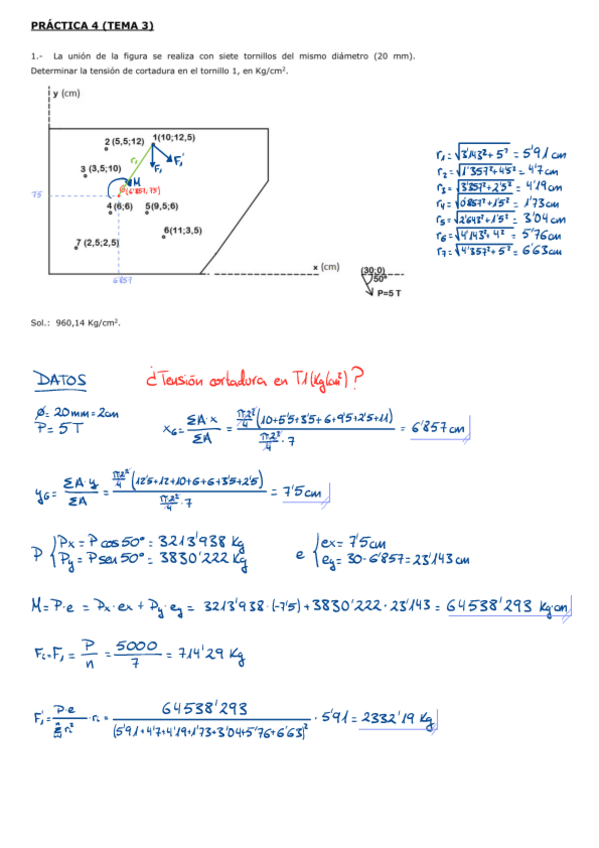 PRÁCTICA 4 (TEMA 3)
1.- La unión de la figura se realiza con siete tornillos del mismo diámetro (20 mm).
Determinar la tensión de cortadura en el tornillo 1, en Kg/cm².
y (cm)
2 (5,5;12)
1(10;12,5)
r₁
F₁
F₁'
3 (3,5;10)
M
G(6'857, 7'5)
7'5
4 (6;6)
5(9,5;6)
6(11;3,5)
7 (2,5;2,5)
6'857
x (cm)
(30;0)
50º
P=5 T
r₁ = √3'143²+5² = 5'91 cm
r₂ = √1'357²+4'5² = 4'7 cm
r₃ = √3'357²+2'5² = 4'19 cm
r₄ = √0'857²+1'5² = 1'73 cm
r₅ = √2'643²+1'5² = 3'04 cm
r₆ = √4'143²+4² = 5'76 cm
r₇ = √4'357²+5² = 6'63 cm
Sol.: 960,14 Kg/cm².
DATOS
¿Tensión cortadura en T1 (Kg/cm²)?
Ø = 20mm = 2cm
P = 5T
x_G = ΣA·x / ΣA = π·2²/4 (10+5'5+3'5+6+9'5+2'5+11) / π·2²/4 · 7 = 6'857 cm
y_G = ΣA·y / ΣA = π·2²/4 (12'5+12+10+6+6+3'5+2'5) / π·2²/4 · 7 = 7'5 cm
P { Px = P cos 50° = 3213'938 Kg
Py = P sen 50° = 3830'222 Kg
e { ex = 7'5 cm
ey = 30-6'857 = 23'143 cm
M = P·e = Px·ex + Py·ey = 3213'938·(-7'5) + 3830'222·23'143 = 64538'293 Kg·cm
Fᵢ = F₁ = P/n = 5000/7 = 714'29 Kg
F₁' = P·e / Σrᵢ² · rᵢ = 64538'293 / (5'91+4'7+4'19+1'73+3'04+5'76+6'63)² · 5'91 = 2332'19 Kg